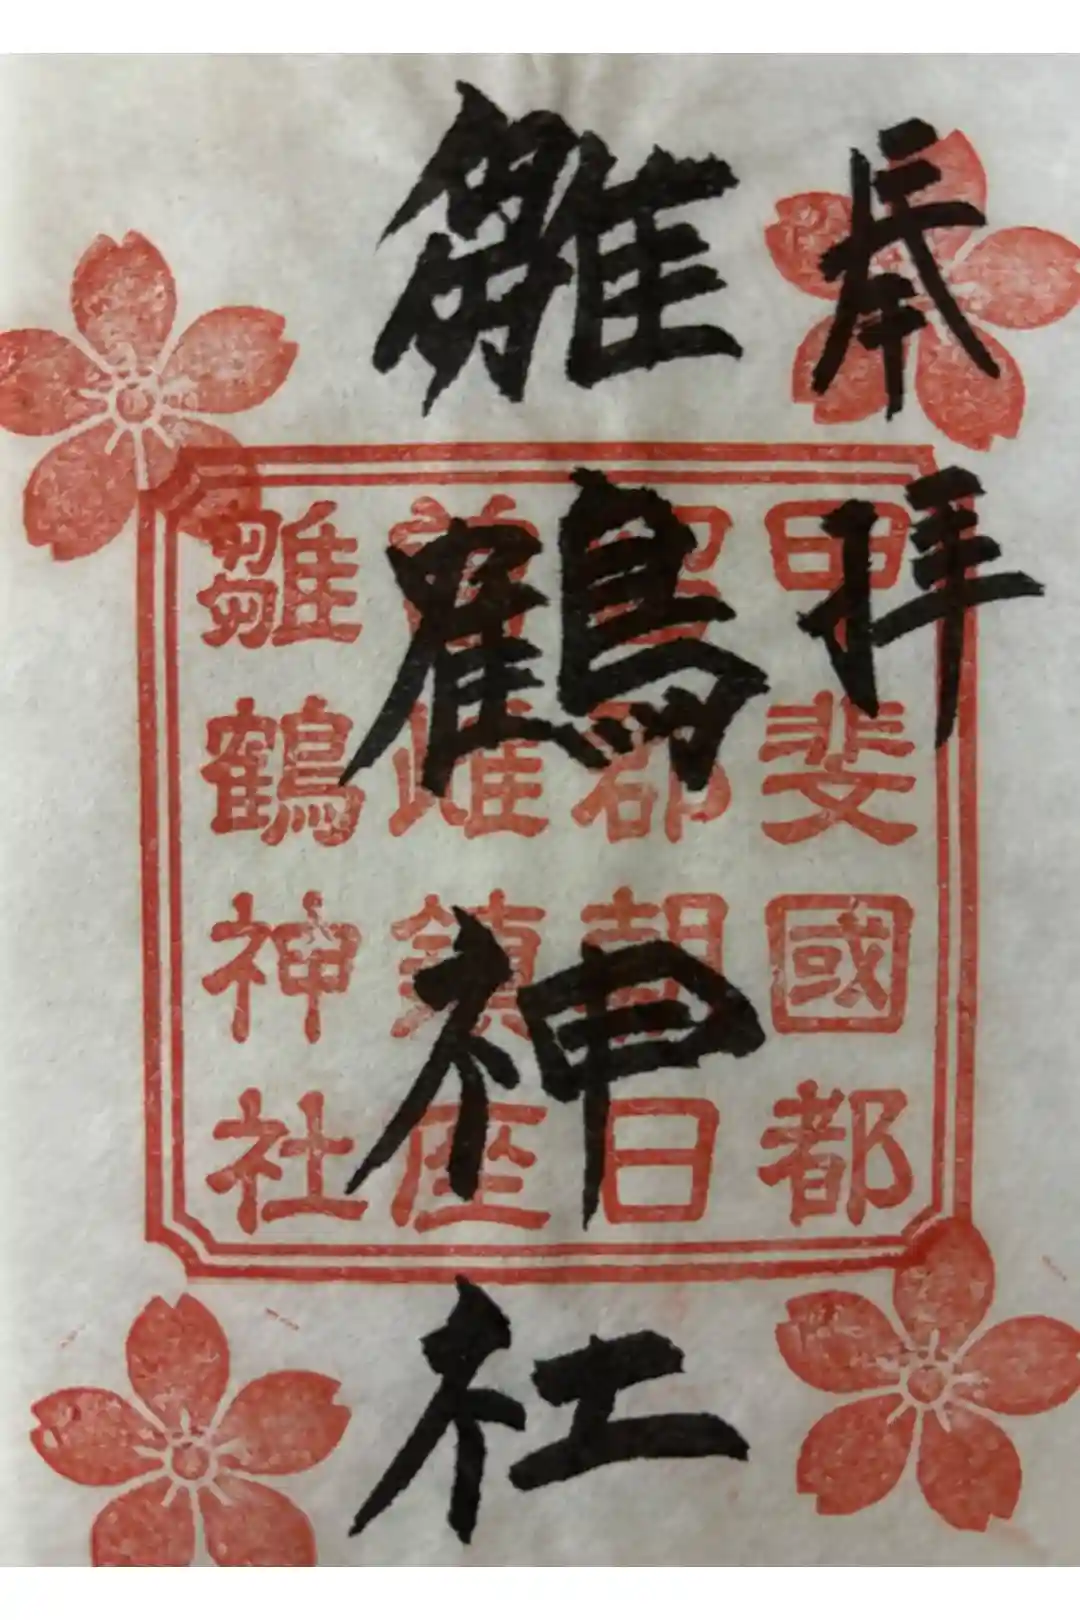 奉拝
雛鶴神社
甲斐國都
留郡朝日
曽雌鎮座
雛鶴神社